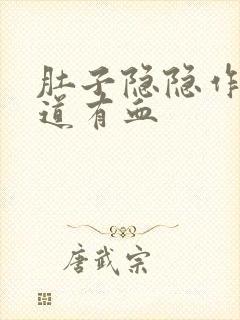 肚子隐隐作
道有血
唐武宗